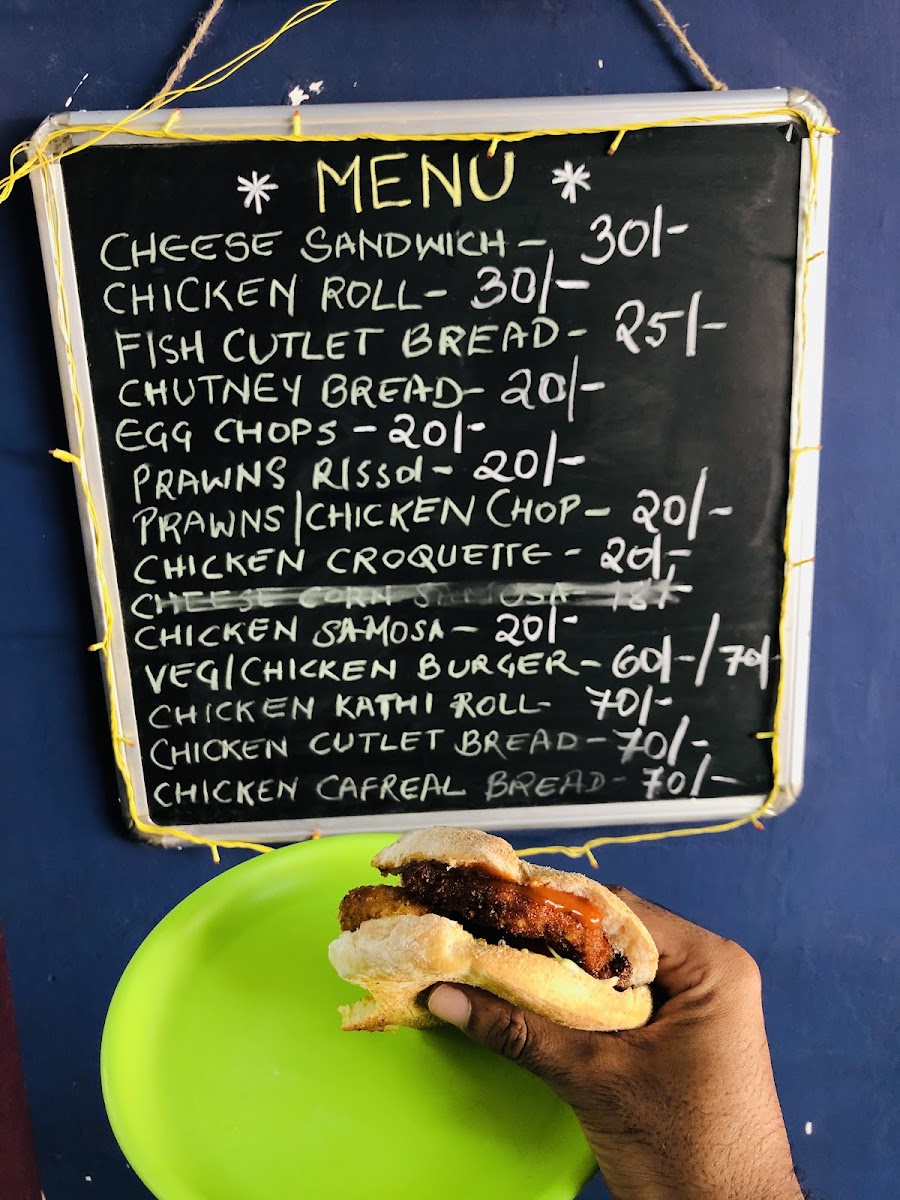 * MENU *
CHEESE SANDWICH - 30/-
CHICKEN ROLL - 30/-
FISH CUTLET BREAD - 25/-
CHUTNEY BREAD - 20/-
EGG CHOPS - 20/-
PRAWNS RISSOl - 20/-
PRAWNS/CHICKEN CHOP - 20/-
CHICKEN CROQUETTE - 20/-
CHEESE CORN SAMOSA - 18/-
CHICKEN SAMOSA - 20/-
VEG/CHICKEN BURGER - 60/-/70/-
CHICKEN KATHI ROLL - 70/-
CHICKEN CUTLET BREAD - 70/-
CHICKEN CAFREAL BREAD - 70/-